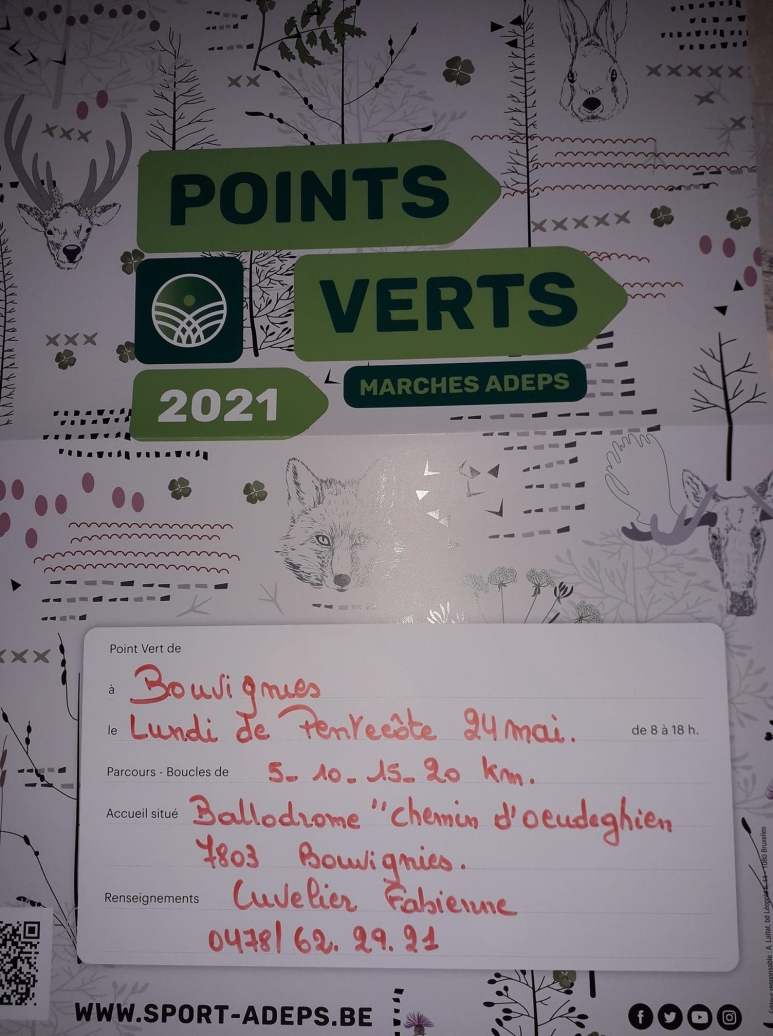 POINTS
VERTS
2021
MARCHES ADEPS
Point Vert de
à Bouvignies
le Lundi de Pentecôte 24 mai. de 8 à 18 h.
Parcours - Boucles de 5- 10- 15- 20 km.
Accueil situé Ballodrome "chemin d'oeudeghien
7803 Bouvignies.
Renseignements Cuvelier Fabienne
0478/62.29.21
WWW.SPORT-ADEPS.BE